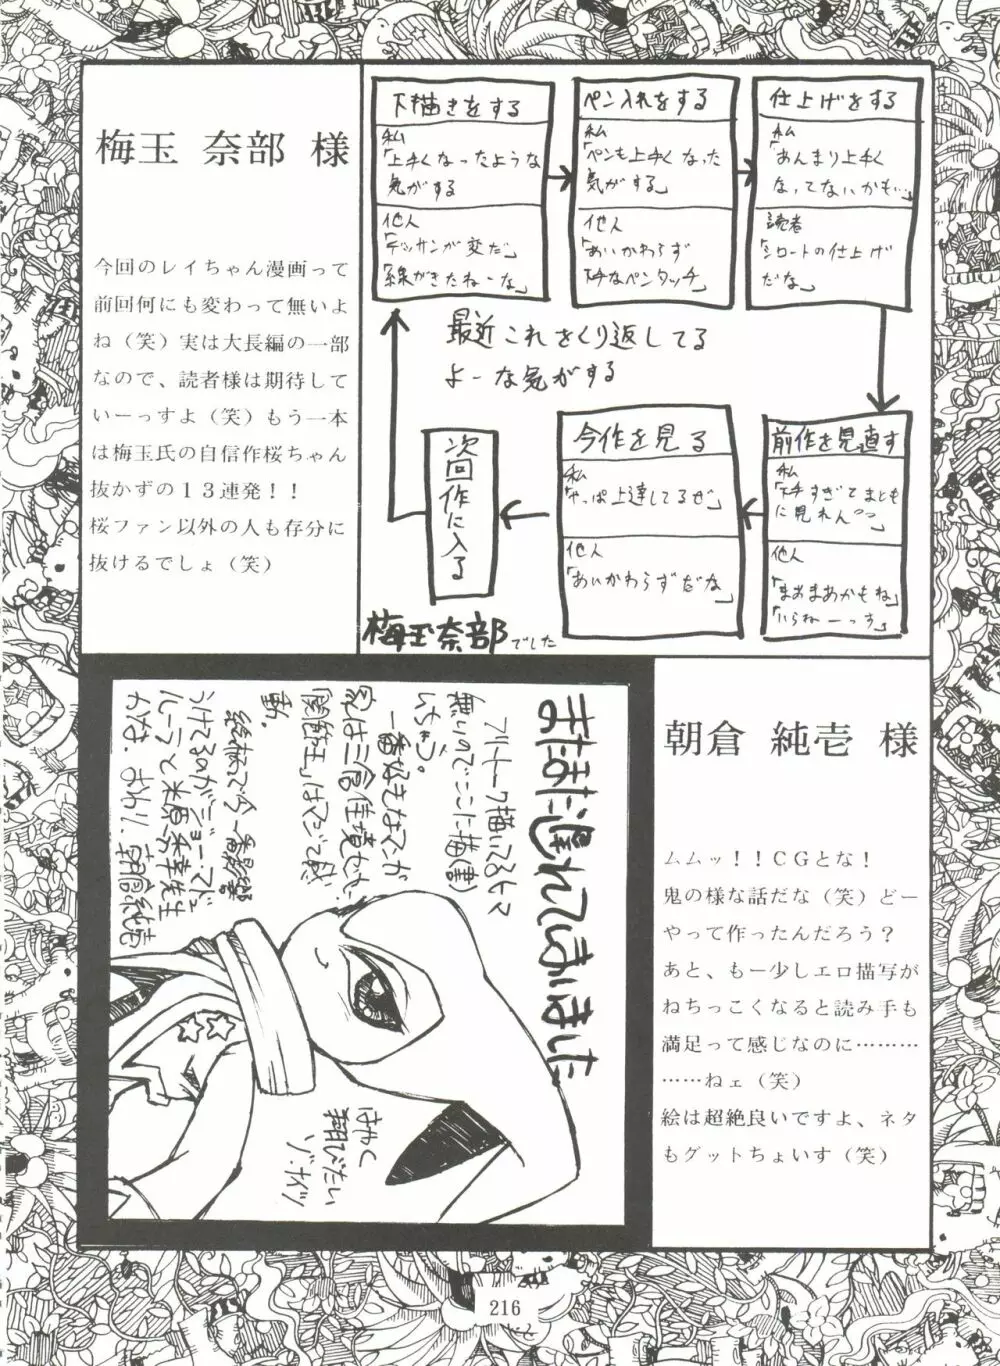 梅玉 奈部 様
今回のレイちゃん漫画って
前回何にも変わって無いよ
ね（笑）実は大長編の一部
なので、読者様は期待して
いーっすよ（笑）もう一本
は梅玉氏の自信作桜ちゃん
抜かずの１３連発！！
桜ファン以外の人も存分に
抜けるでしょ（笑）
下描きをする
私
「上手くなったような
気がする
他人
「デッサンが変だ」
「線がきたねーな」
ペン入れをする
私
「ペンも上手くなった
気がする」
他人
「あいかわらず
なペンタッチ」
仕上げをする
私
「あんまり上手く
なってないかも…」
読者
「シロートの仕上げ
だな」
前作を見直す
私
すぎてまとも
に見れん
他人
「まぁまぁかもね」
「いらねーっす」
今作を見る
私
「やっぱ上達してるぜ」
他人
「あいかわらずだな」
次回作に入る
最近これをくり返してる
よーな気がする
梅玉奈部でした
またまた遅れてしまいました
フリートーク描いてるヒマ
無いのでここに描(書)
いちゃう。
一番好きなマンガ
動。
おわり。朝倉純壱
はやく
翔びたい
朝倉 純壱 様
ムムッ！！ＣＧとな！
鬼の様な話だな（笑）どー
やって作ったんだろう？
あと、もー少しエロ描写が
ねちっこくなると読み手も
満足って感じなのに………
……ねェ（笑）
絵は超絶良いですよ、ネタ
もグットちょいす（笑）
216